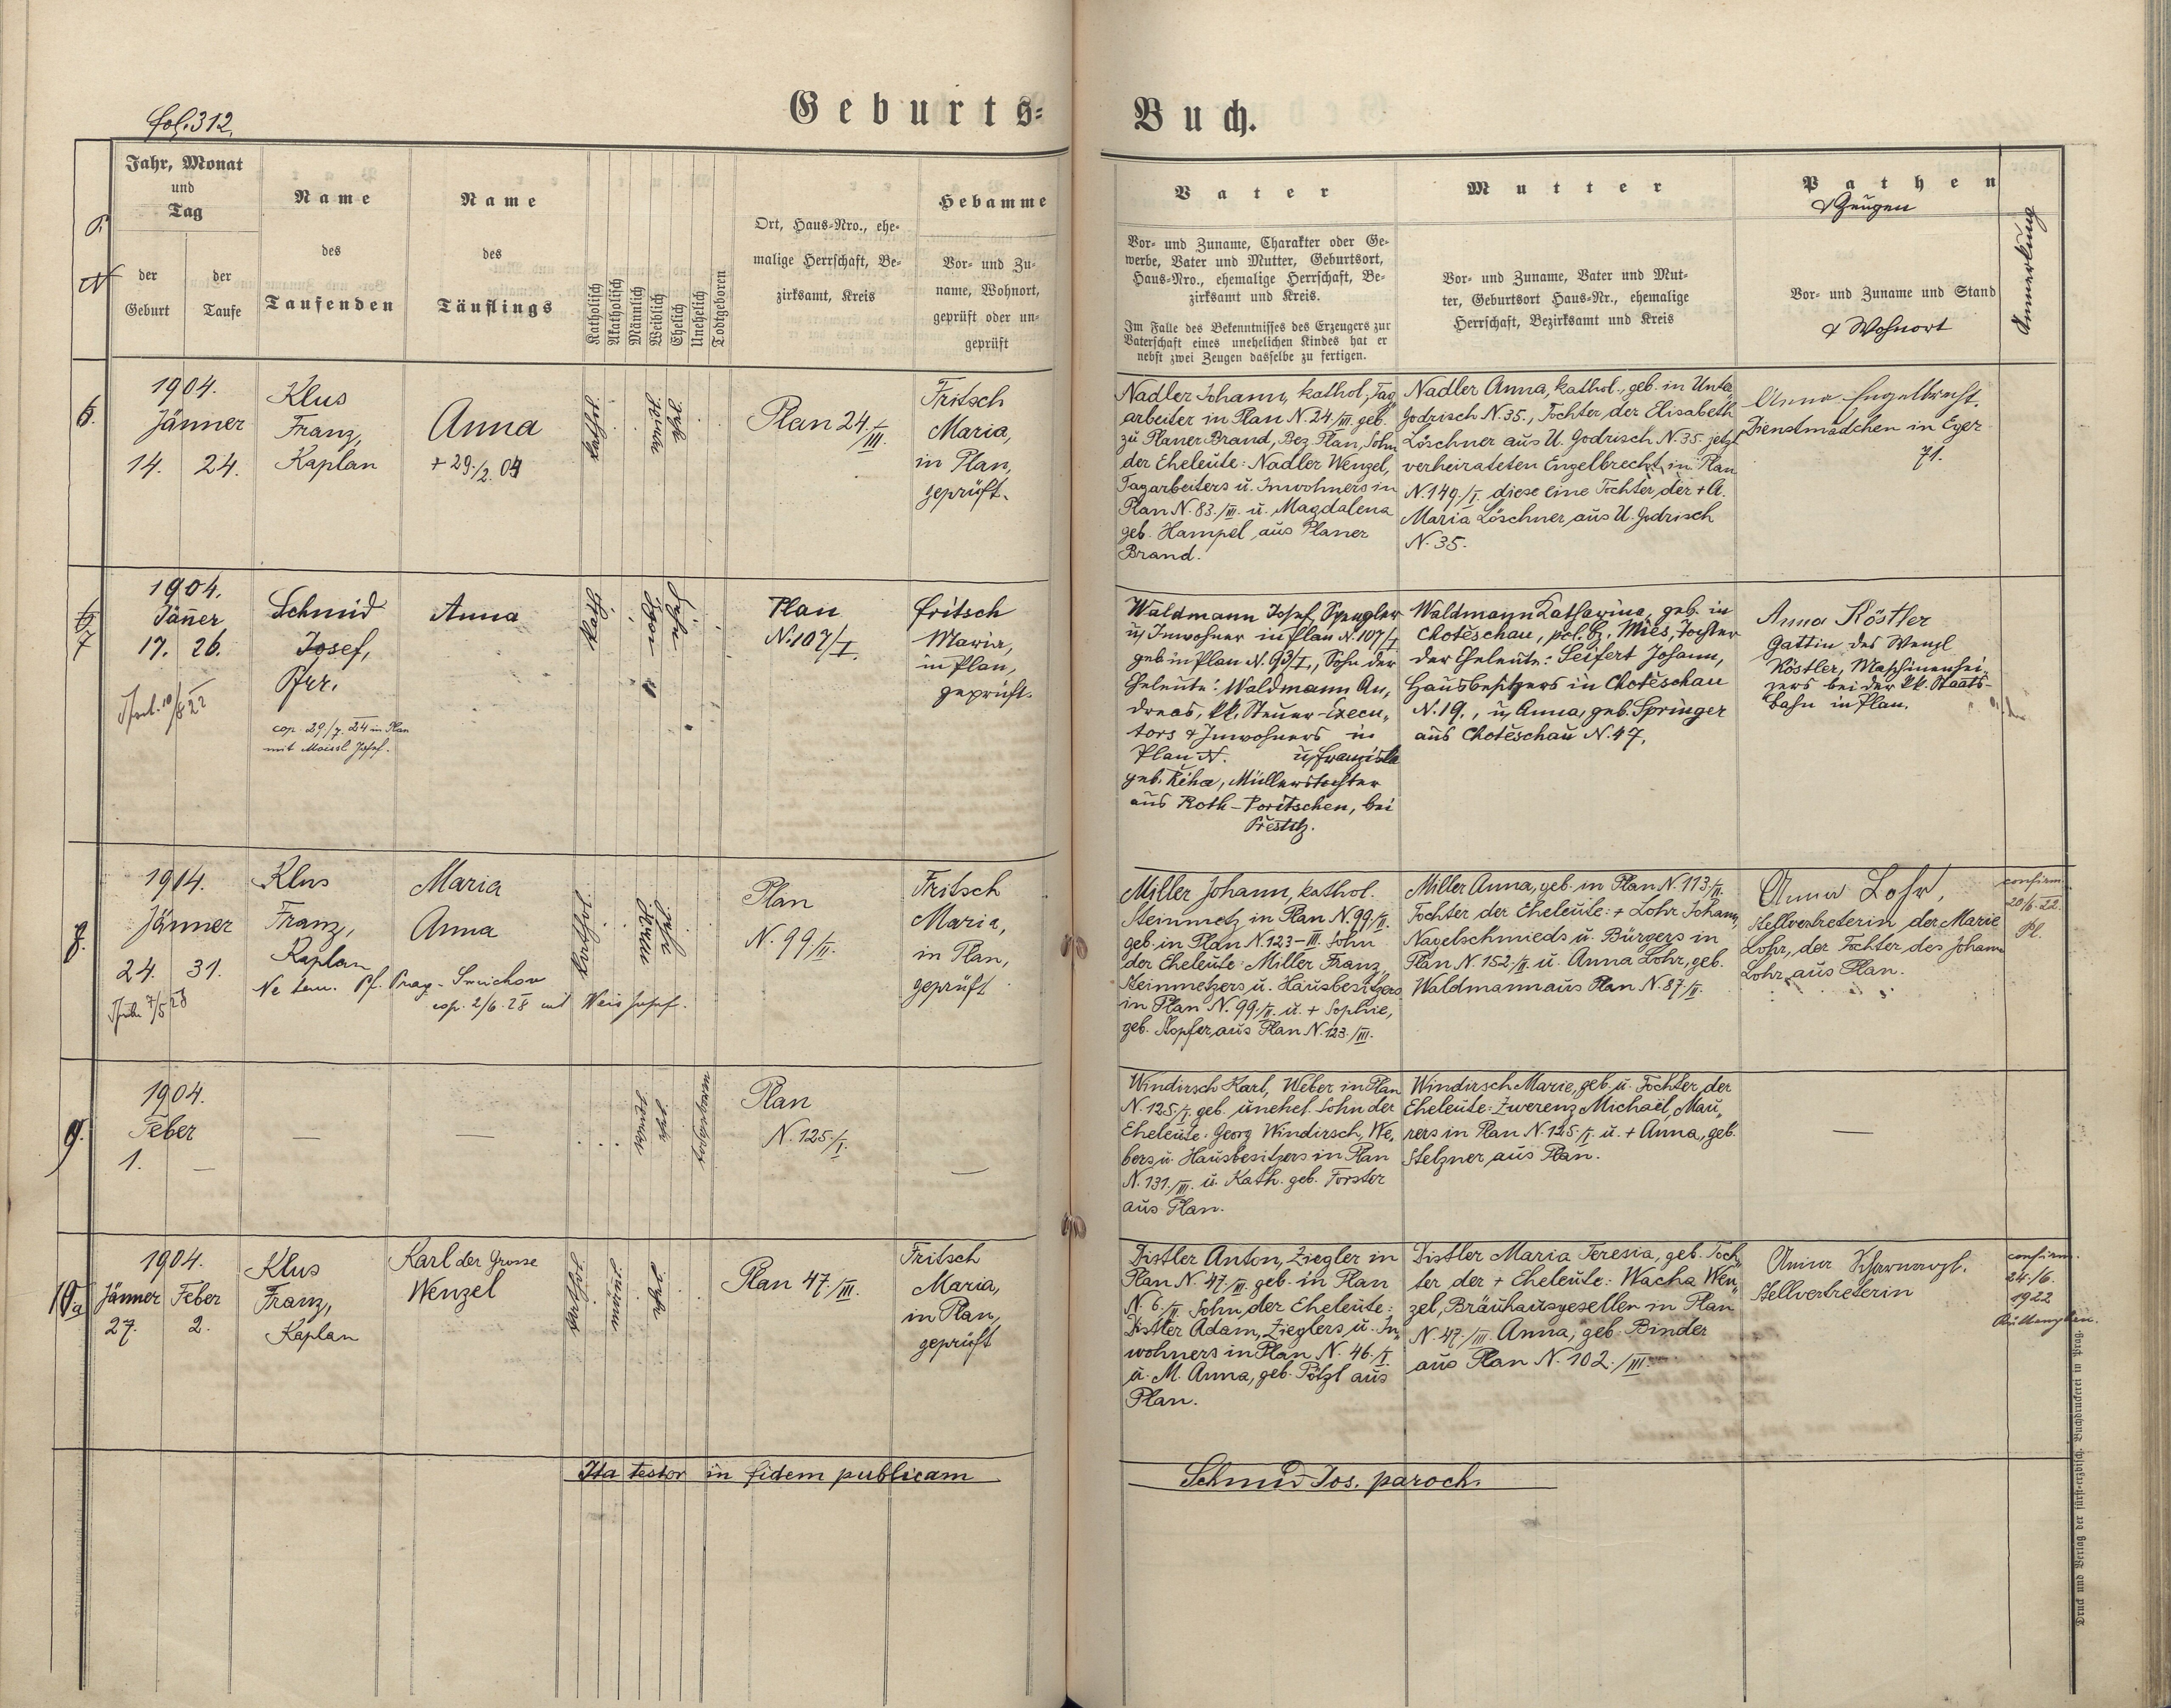 fol. 312.
Geburts-
Buch.
Jahr, Monat
und
Tag
der
Geburt
der
Taufe
Name
des
Taufenden
Name
des
Täuflings
Katholisch
Akatholisch
Männlich
Weiblich
Ehelich
Unehelich
Todtgeboren
Ort, Haus-Nro., ehe-
malige Herrschaft, Be-
zirksamt, Kreis
Hebamme
Vor- und Zu-
name, Wohnort,
geprüft oder un-
geprüft
Vater
Vor- und Zuname, Charakter oder Ge-
werbe, Vater und Mutter, Geburtsort,
Haus-Nro., ehemalige Herrschaft, Be-
zirksamt und Kreis.
Im Falle des Bekenntnisses des Erzeugers zur
Vaterschaft eines unehelichen Kindes hat er
nebst zwei Zeugen dasselbe zu fertigen.
Mutter
Vor- und Zuname, Vater und Mut-
ter, Geburtsort Haus-Nr., ehemalige
Herrschaft, Bezirksamt und Kreis
Pathen
& Zeugen
Vor- und Zuname und Stand
& Wohnort
Anmerkung
6.
1904.
Jänner
14. 24.
Klus
Franz,
Kaplan
Anna
+ 29./2. 04
kathol.
Plan 24./III.
Fritsch
Maria,
in Plan,
geprüft.
Nadler Johann, kathol., Tag
arbeiter in Plan N. 24/III. geb.
zu Planer Brand, Bez. Plan, Sohn
der Eheleute: Nadler Wenzel,
Tagarbeiters u. Inwohners in
Plan N. 83./III. u. Magdalena
geb. Hampel aus Planer
Brand.
Nadler Anna, kathol., geb. in Unter
Godrisch N. 35., Tochter der Elisabeth
Löschner aus U. Godrisch N. 35. jetzt
verheirateten Engelbrecht in Plan
N. 149./I. diese eine Tochter der + A.
Maria Löschner aus U. Godrisch
N. 35.
Anna Engelbrecht.
Dienstmädchen in Eger
71.
7
1904.
Jäner
17. 26.
Schmid
Josef,
Pfr.
cop. 29/7. 24 in Plan
mit Moissl Josef.
Anna
kathol.
Plan
N. 107/I.
Fritsch
Maria,
in Plan,
geprüft.
Waldmann Josef, Spengler
u. Inwohner in Plan N. 107/I
geb in Plan N. 93/I., Sohn der
Eheleute: Waldmann An,
dreas, kk. Steuer-Execu,
tors & Inwohners in
Plan N. u. Franziska
geb. Řiha, Müllerstochter
aus Roth-Poritschen, bei
Přestitz.
Waldmann Katharina, geb. in
Chotěschau, pol. Bz. Mies, Tochter
der Eheleute: Seifert Johann,
Hausbesitzers in Chotěschau
N. 19., u. Anna, geb. Springer
aus Chotěschau N. 47.
Anna Köstler
Gattin des Wenzl
Köstler, Maschinenhei-
zers bei der kk. Staats-
bahn in Plan.
8.
1904.
Jänner
24. 31.
Klus
Franz,
Kaplan
Maria
Anna
Ne tem. Pf. Prag-Smichov
cop. 2/6. 28 mit Weis Josef.
kathol.
Plan
N. 99/II.
Fritsch
Maria,
in Plan,
geprüft
Miller Johann, kathol.
Steinmetz in Plan N. 99/II.
geb. in Plan N. 123-III. Sohn
der Eheleute: Miller Franz,
Steinmetzers u. Hausbesitzers
in Plan N. 99./II. u. + Sophie,
geb. Stopfer, aus Plan N. 123./III.
Miller Anna, geb. in Plan N. 113./II.
Tochter der Eheleute: + Lohr Johann,
Nagelschmieds u. Bürgers in
Plan N. 152./II. u. Anna Lohr, geb.
Waldmann aus Plan N. 87./II.
Anna Lohr,
Stellvertreterin der Marie
Lohr, der Tochter des Johann
Lohr aus Plan.
confirm.
20/6. 22.
Pl.
9.
1904.
Feber
1. —
—
—
todtgeboren
Plan
N. 125./I.
—
Windirsch Karl, Weber in Plan
N. 125./I. geb. unehel. Sohn der
Eheleute: Georg Windirsch, We,
bers u. Hausbesitzers in Plan
N. 131./III. u. Kath. geb. Forster
aus Plan.
Windirsch Marie, geb. u. Tochter der
Eheleute: Zwerenz Michael, Mau,
rers in Plan N. 125./I. u. + Anna, geb.
Stelzner aus Plan.
—
10a
1904.
Jänner Feber
27. 2.
Klus
Franz,
Kaplan
Karl der Grosse
Wenzel
kathol.
Plan 47./III.
Fritsch
Maria,
in Plan,
geprüft
Distler Anton, Ziegler in
Plan N. 47./III. geb. in Plan
N. 6./II. Sohn der Eheleute:
Distler Adam, Zieglers u. In,
wohners in Plan N. 46./I.
u. M. Anna, geb. Pötzl aus
Plan.
Distler Maria Teresia, geb. Toch,
ter der + Eheleute: Wacha Wen,
zel, Bräuhausgesellen in Plan
N. 47./III. Anna, geb. Binder
aus Plan N. 102./III.
Anna
Stellvertreterin
confirm.
24./6.
1922
Ita testor in fidem publicam
Schmid Jos. paroch.
Druck und Verlag der fürst-erzbisch. Buchdruckerei in Prag.